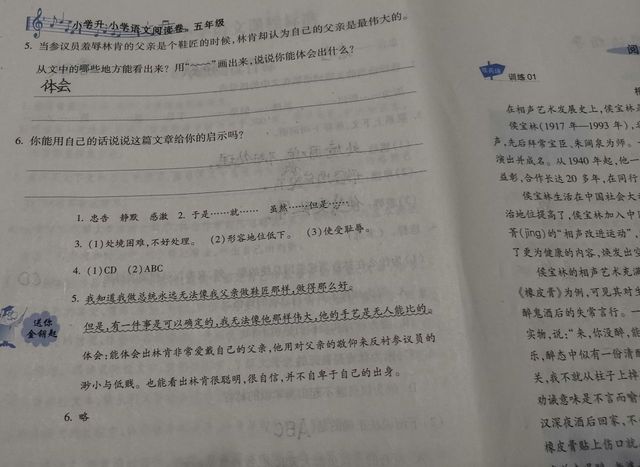 小学升·小学语文阅读卷。五年级
5. 当参议员羞辱林肯的父亲是个鞋匠的时候,林肯却认为自己的父亲是最伟大的。
从文中的哪些地方能看出来?用“~~~”画出来,说说你能体会出什么?
体会
6. 你能用自己的话说说这篇文章给你的启示吗?
1. 忠告 静默 感激 2. 于是……就…… 虽然……但是……
3. (1)处境困难,不好处理。 (2)形容地位低下。 (3)使受耻辱。
4. (1)CD (2)ABC
5. 我知道我做总统永远无法像我父亲做鞋匠那样,做得那么好。
但是,有一件事是可以确定的,我无法像他那样伟大,他的手艺是无人能比的。
体会:能体会出林肯非常爱戴自己的父亲,他用对父亲的敬仰来反衬参议员的
渺小与低贱。也能看出林肯很聪明,很自信,并不自卑于自己的出身。
6. 略
送你
金钥匙
阅
训练 01
在相声艺术发展史上,侯宝林
侯宝林(1917 年—1993 年),
声,先后拜常宝臣、朱阔泉为师。
演出并成名。从 1940 年起,他一
益彰,合作长达 20 多年,在同行
侯宝林生活在中国社会大
治地位提高了,侯宝林加入中
菁(jīng)的“相声改进运动”,
了更为健康的内容,焕发出
侯宝林的相声艺术充满
《橡皮膏》为例,可见其对生
醉鬼酒后的失常言行。一
实物,说:“来,你没醉,能
乐,醉态中似有一份清醒
关,我不就从柱子上掉
劝诫意味是不言而喻
汉深夜酒后回家,不
橡皮膏贴上伤口就